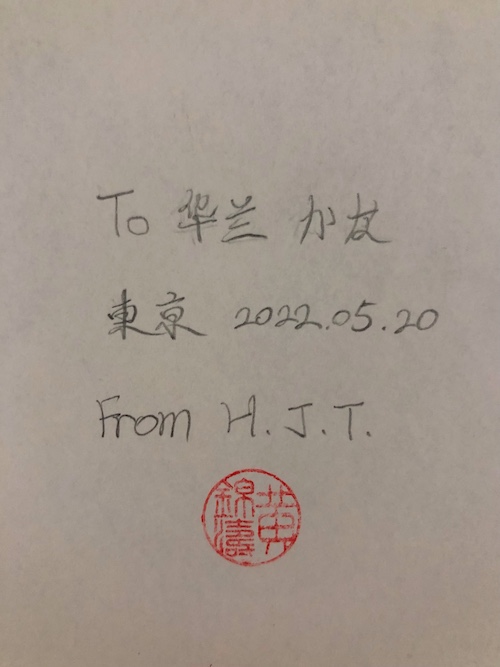 To 华兰 小友
東京 2022.05.20
From H.J.T.
黄錦濤